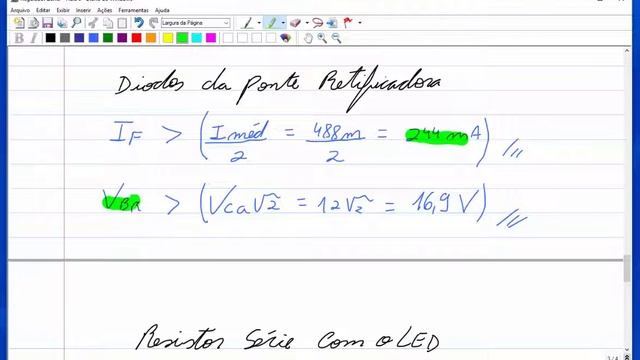 Arquivo Editar Exibir Inserir Ações Ferramentas Ajuda
Largura da Página
Diodos da Ponte Retificadora
IF > (Iméd/2 = 488m/2 = 244 mA)
VBR > (Vca√2 = 12√2 = 16,9 V)
Resistor Série com o LED